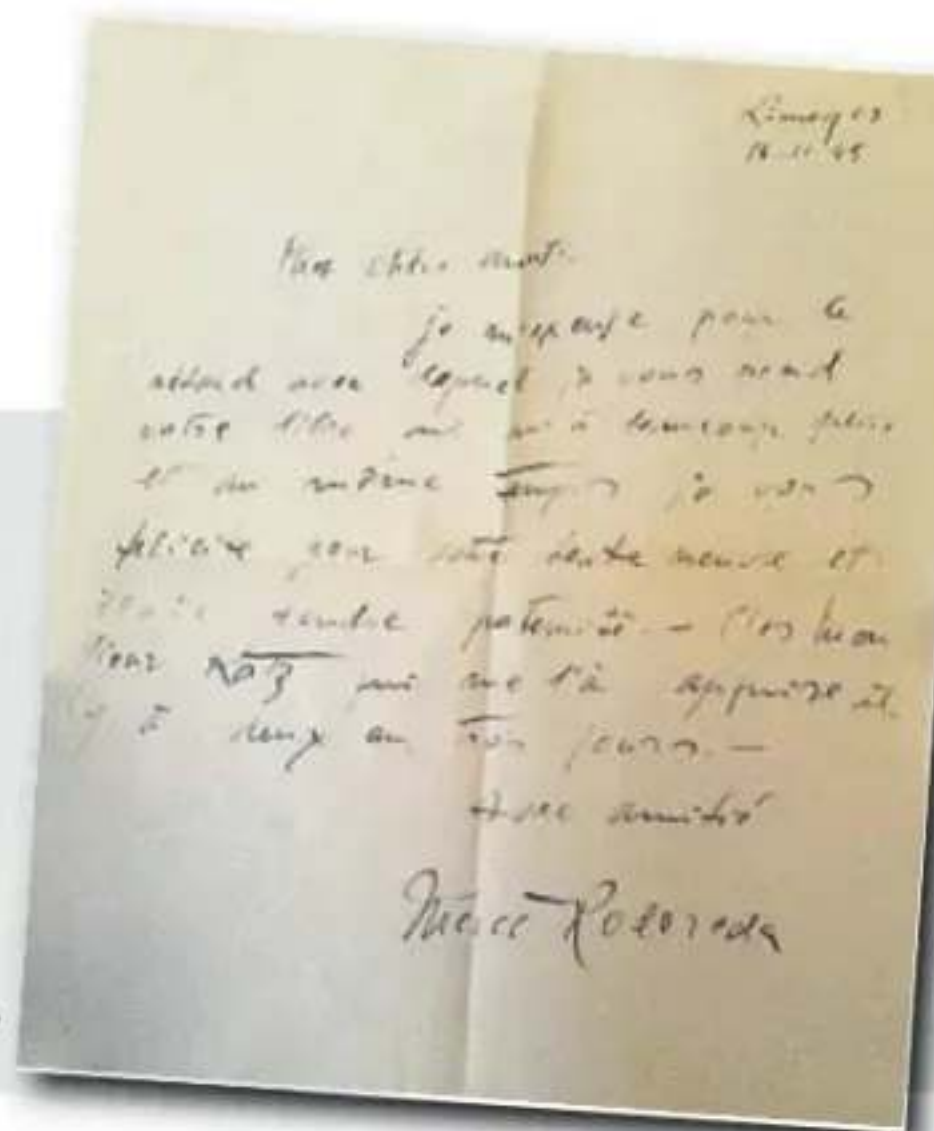 Limoges
Mon cher ami:
je m'excuse pour le
retard avec lequel je vous rend
votre livre qui m'à beaucoup
et au même temps je vous
félicite pour votre toute neuve et
tendre paternité — C'est mon
qui me l'à apprise il
y à deux ou trois jours. —
Avec amitié
Mercè Rodoreda